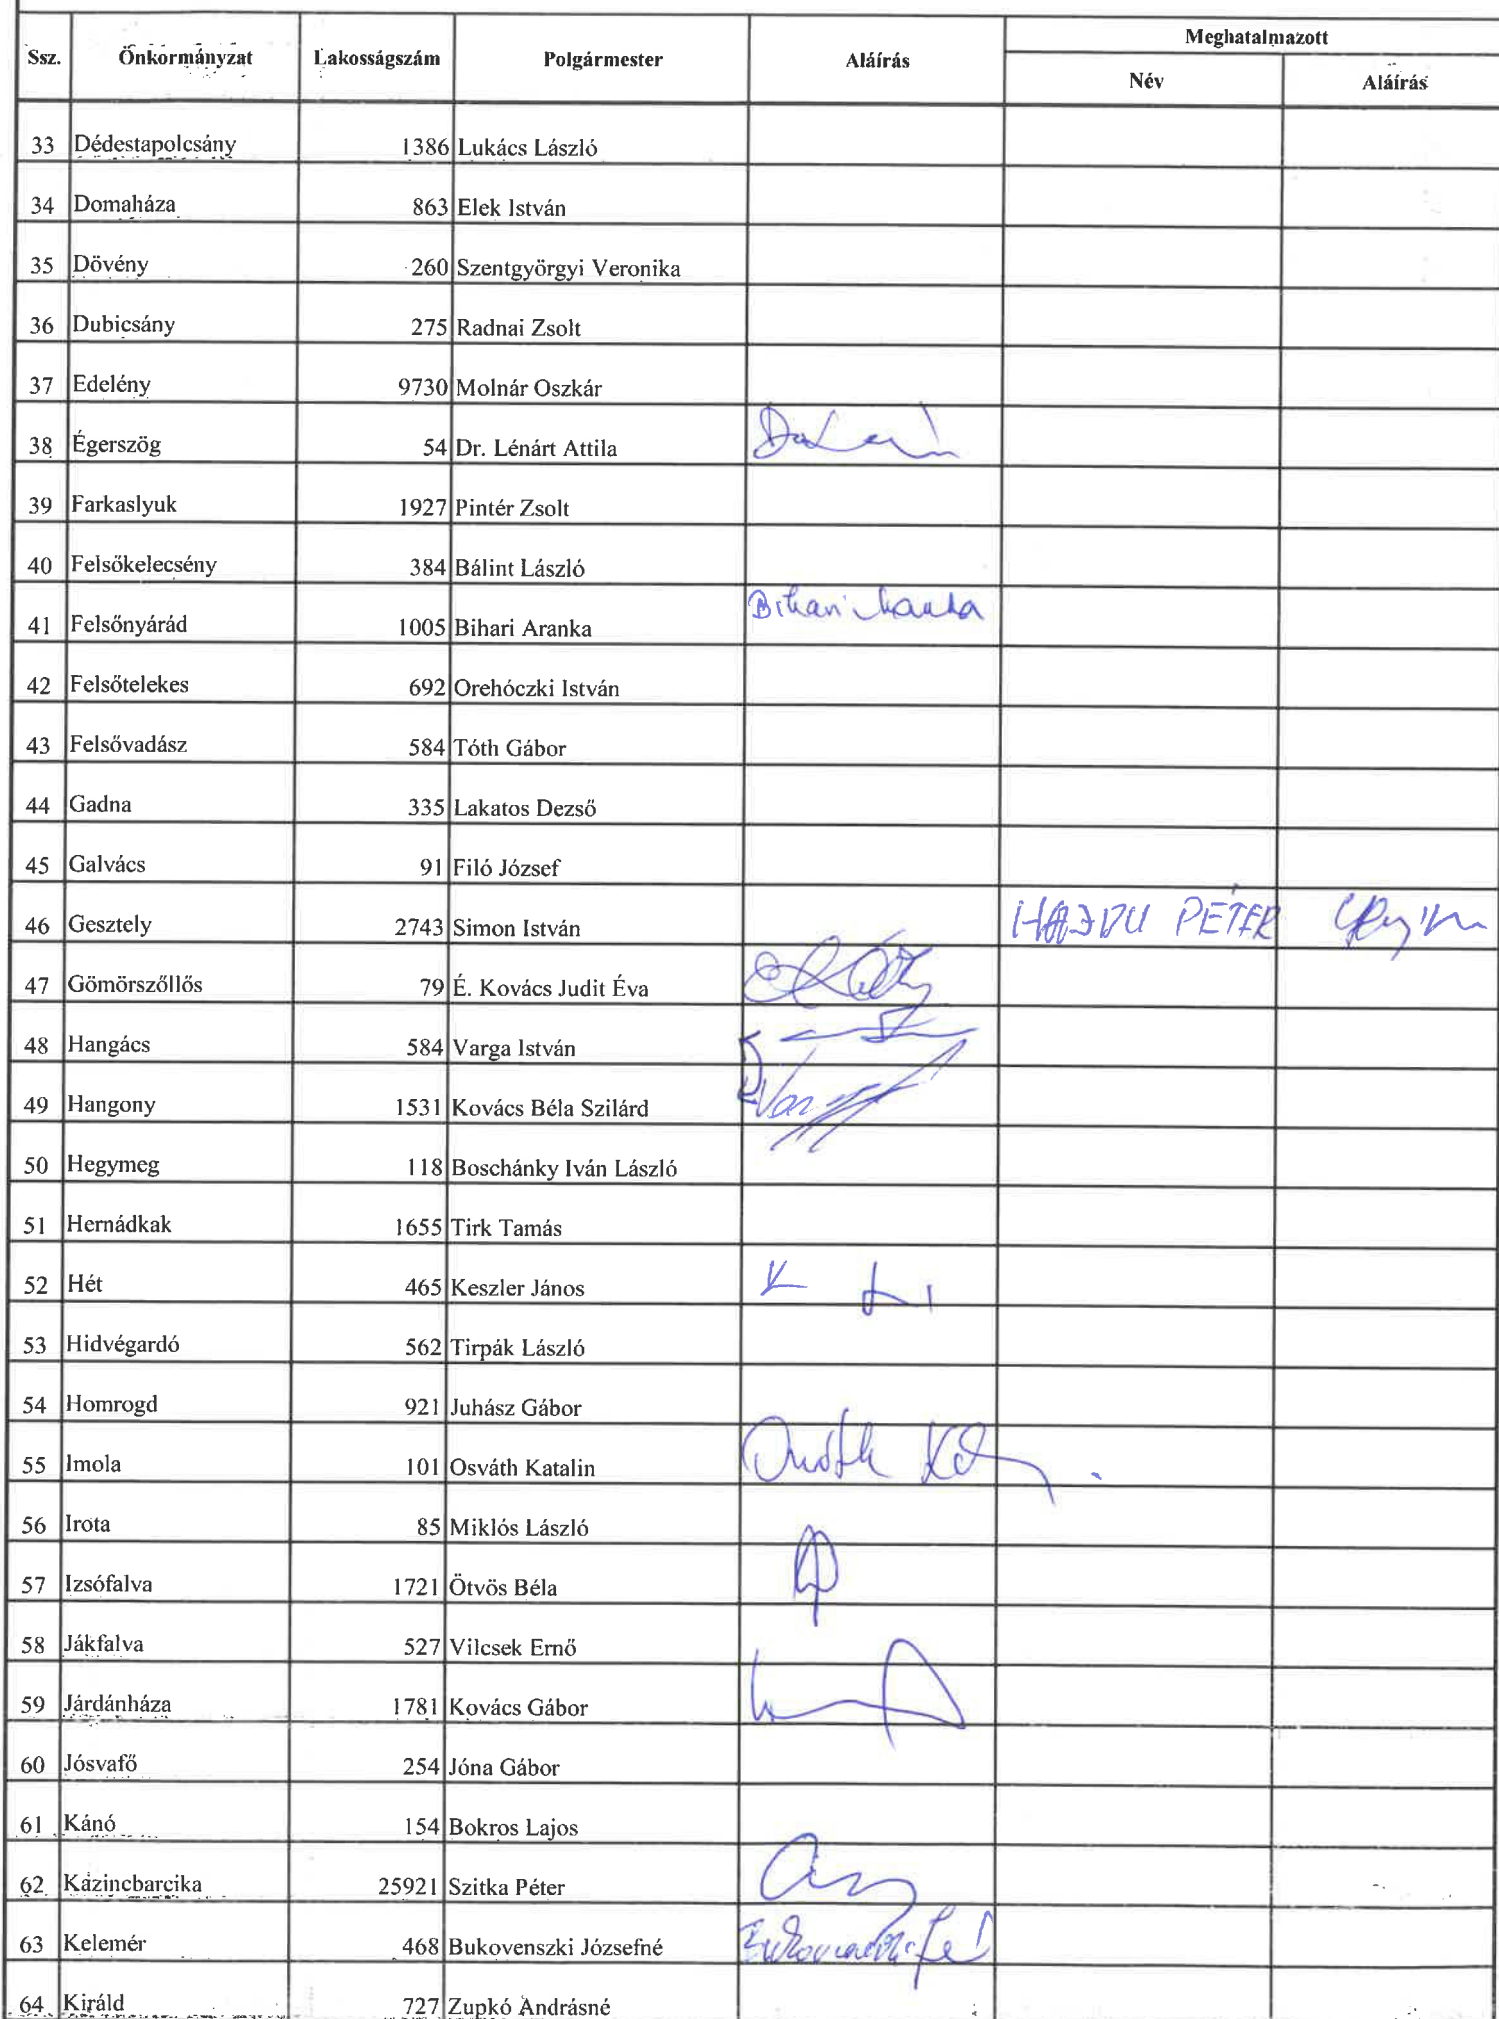 Ssz. Önkormányzat Lakosságszám Polgármester Aláírás Meghatalmazott
Név Aláírás
33 Dédestapolcsány 1386 Lukács László
34 Domaháza 863 Elek István
35 Dövény 260 Szentgyörgyi Veronika
36 Dubicsány 275 Radnai Zsolt
37 Edelény 9730 Molnár Oszkár
38 Égerszög 54 Dr. Lénárt Attila
39 Farkaslyuk 1927 Pintér Zsolt
40 Felsőkelecsény 384 Bálint László
41 Felsőnyárád 1005 Bihari Aranka Bihari Aranka
42 Felsőtelekes 692 Orehóczki István
43 Felsővadász 584 Tóth Gábor
44 Gadna 335 Lakatos Dezső
45 Galvács 91 Filó József
46 Gesztely 2743 Simon István HAJDU PÉTER
47 Gömörszőllős 79 É. Kovács Judit Éva
48 Hangács 584 Varga István
49 Hangony 1531 Kovács Béla Szilárd
50 Hegymeg 118 Boschánky Iván László
51 Hernádkak 1655 Tirk Tamás
52 Hét 465 Keszler János
53 Hidvégardó 562 Tirpák László
54 Homrogd 921 Juhász Gábor
55 Imola 101 Osváth Katalin
56 Irota 85 Miklós László
57 Izsófalva 1721 Ötvös Béla
58 Jákfalva 527 Vilcsek Ernő
59 Járdánháza 1781 Kovács Gábor
60 Jósvafő 254 Jóna Gábor
61 Kánó 154 Bokros Lajos
62 Kazincbarcika 25921 Szitka Péter
63 Kelemér 468 Bukovenszki Józsefné
64 Királd 727 Zupkó Andrásné